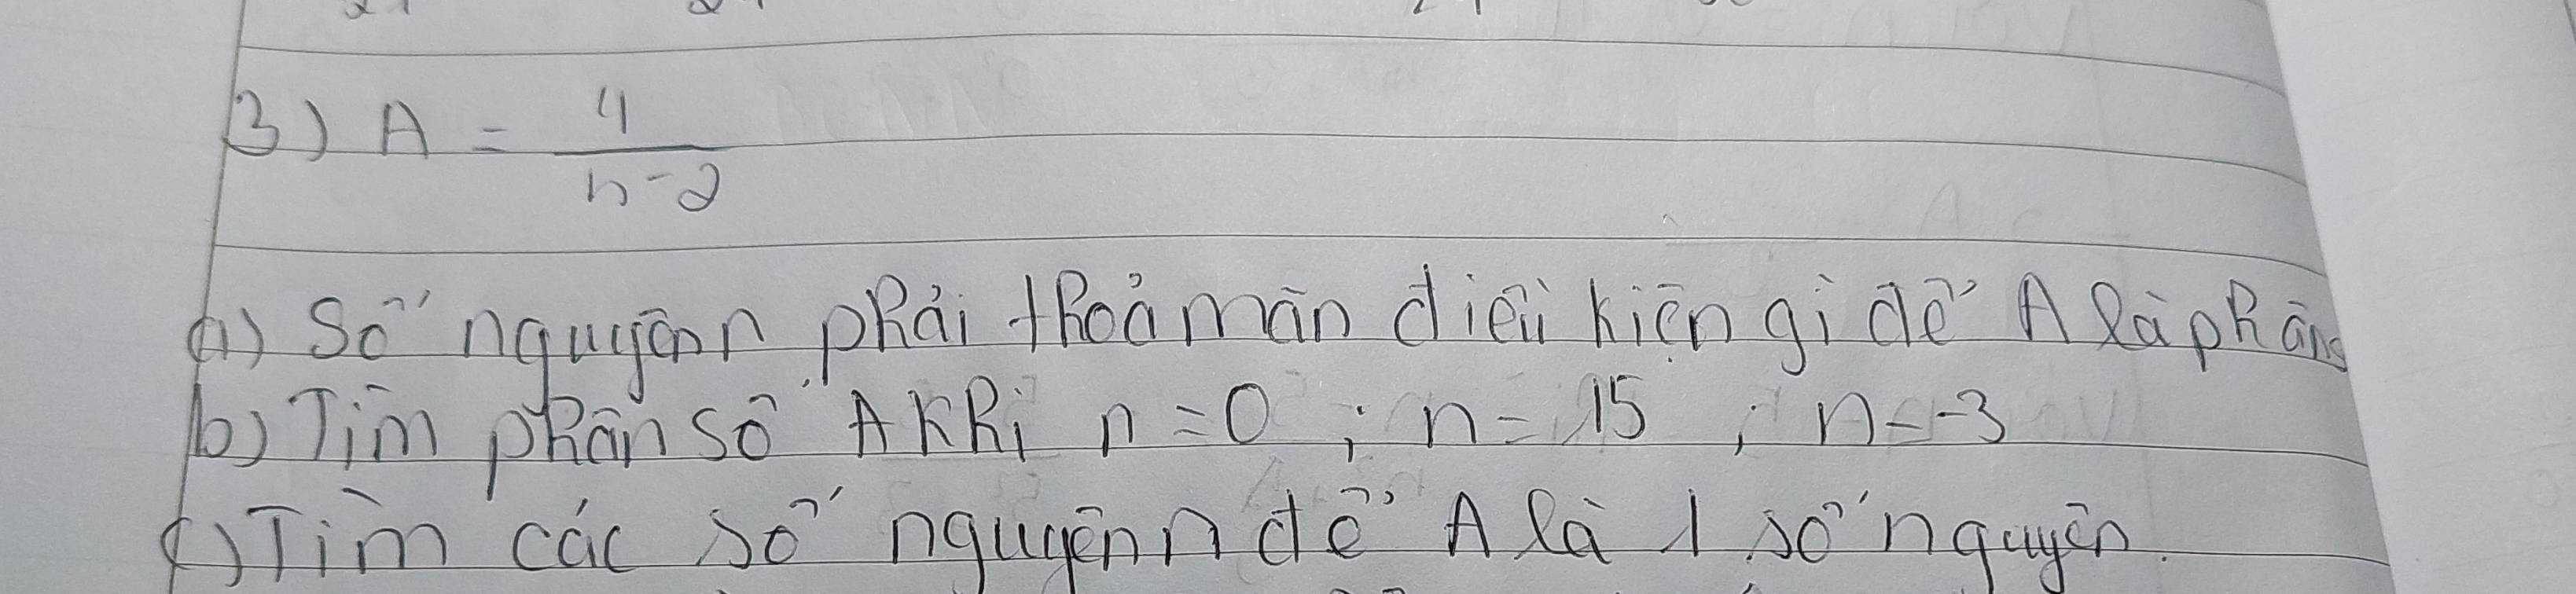 3) A = 4/(n-2)
a) Số nguyên n phải thoả mãn điều kiện gì để A là phân
b) Tìm phân số A khi n = 0 ; n = 15 ; n = -3
c) Tìm các số nguyên n để A là 1 số nguyên.